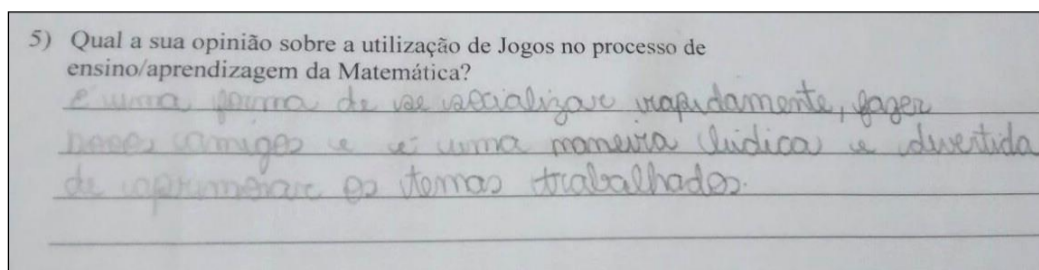 5) Qual a sua opinião sobre a utilização de Jogos no processo de
ensino/aprendizagem da Matemática?
é uma forma de se socializar rapidamente, fazer
novos amigos e é uma maneira lúdica e divertida
de aprimorar os temas trabalhados.